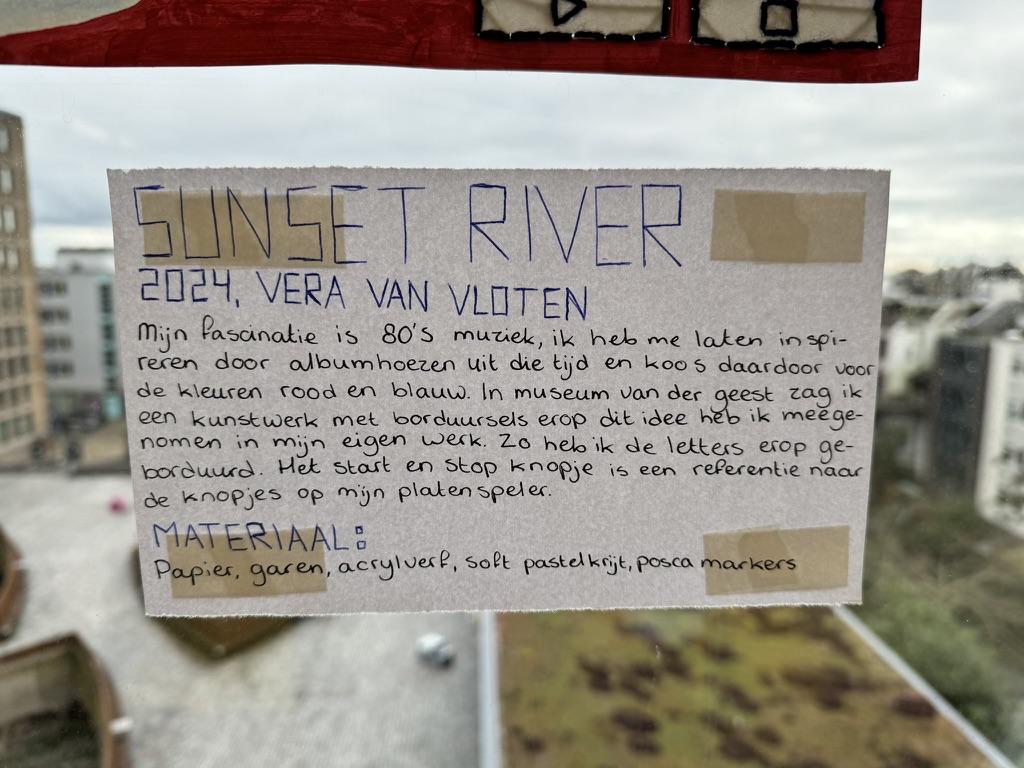 SUNSET RIVER
2024, VERA VAN VLOTEN
Mijn fascinatie is 80'S muziek, ik heb me laten inspi-
reren door albumhoezen uit die tijd en koos daardoor voor
de kleuren rood en blauw. In museum van der geest zag ik
een kunstwerk met borduursels erop dit idee heb ik meege-
nomen in mijn eigen werk. Zo heb ik de letters erop ge-
borduurd. Het start en stop knopje is een referentie naar
de knopjes op mijn platenspeler.
MATERIAAL:
Papier, garen, acrylverf, soft pastelkrijt, posca markers